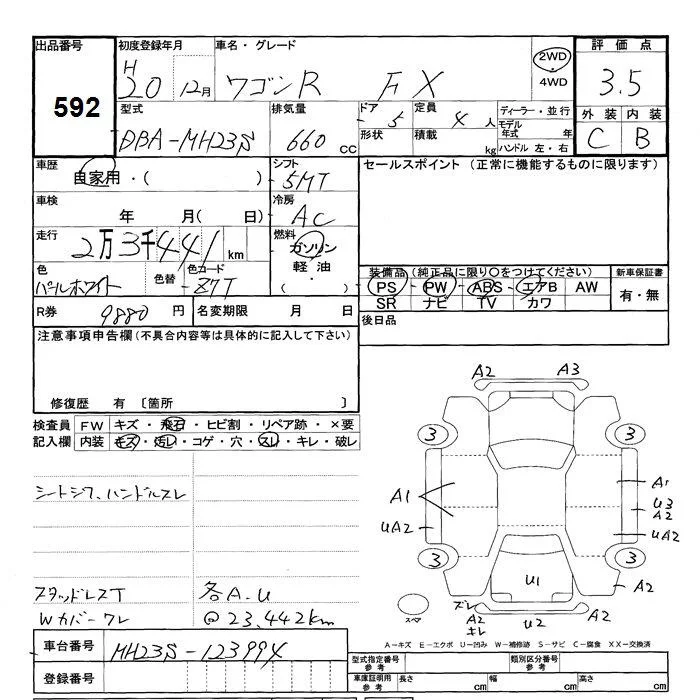 出品番号 初度登録年月 車名・グレード 評価点
592 H20 12月 ワゴンR FX 2WD 4WD 3.5
型式 排気量 ドア 定員 ディーラー・並行 外装 内装
DBA-MH23S 660cc 5 4人 モデル年式 年 C B
形状 積載 kg ハンドル 左・右
車歴 自家用・( ) シフト 5MT セールスポイント (正常に機能するものに限ります)
車検 年 月( 日) 冷房 AC
走行 2万3千441km 燃料 ガソリン
軽油・( )
色 パールホワイト 色替 色コード Z7T 装備品 (純正品に限り○をつけてください) 新車保証書
PS・PW・ABS・エアB AW 有・無
SR ナビ TV カワ
R券 9880円 名変期限 月 日 後日品
注意事項申告欄(不具合内容等は具体的に記入して下さい)
修復歴 有 〔箇所 〕
検査員 FW キズ・飛石・ヒビ割・リペア跡・×要
記入欄 内装 キズ・汚レ・コゲ・穴・スレ・キレ・破レ
シートシワ、ハンドルスレ
スタッドレスT 各A.U
Wカバーワレ @23,442km
A2 A3
3 3
A1 A1
U3
A2
UA2 UA2
3 3
U1 A2
スペア ズレ
A2
キレ U2 A2
A-キズ E-エクボ U-凹み W-補修跡 S-サビ C-腐食 XX-交換済
車台番号 MH23S-123994
登録番号
型式指定番号 参考 類別区分番号 参考
車庫証明用 参考 長さ cm 幅 cm 高さ cm